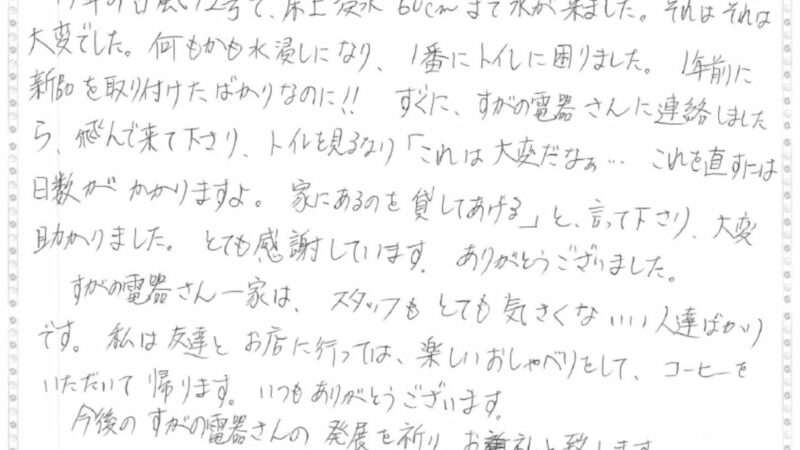 年の台風12号で、床上浸水60cmまで水が来ました。それはそれは
大変でした。何もかも水浸しになり、1番にトイレに困りました。1年前に
新品を取り付けたばかりなのに!! すぐに、すがの電器さんに連絡しました
ら、飛んで来て下さり、トイレを見るなり「これは大変だなぁ… これを直すには
日数がかかりますよ。家にあるのを貸してあげる」と、言って下さり、大変
助かりました。とても感謝しています。ありがとうございました。
すがの電器さん一家は、スタッフもとても気さくないい人達ばかり
です。私は友達とお店に行っては、楽しいおしゃべりをして、コーヒーを
いただいて帰ります。いつもありがとうございます。
今後のすがの電器さんの発展を祈り、お礼と致します